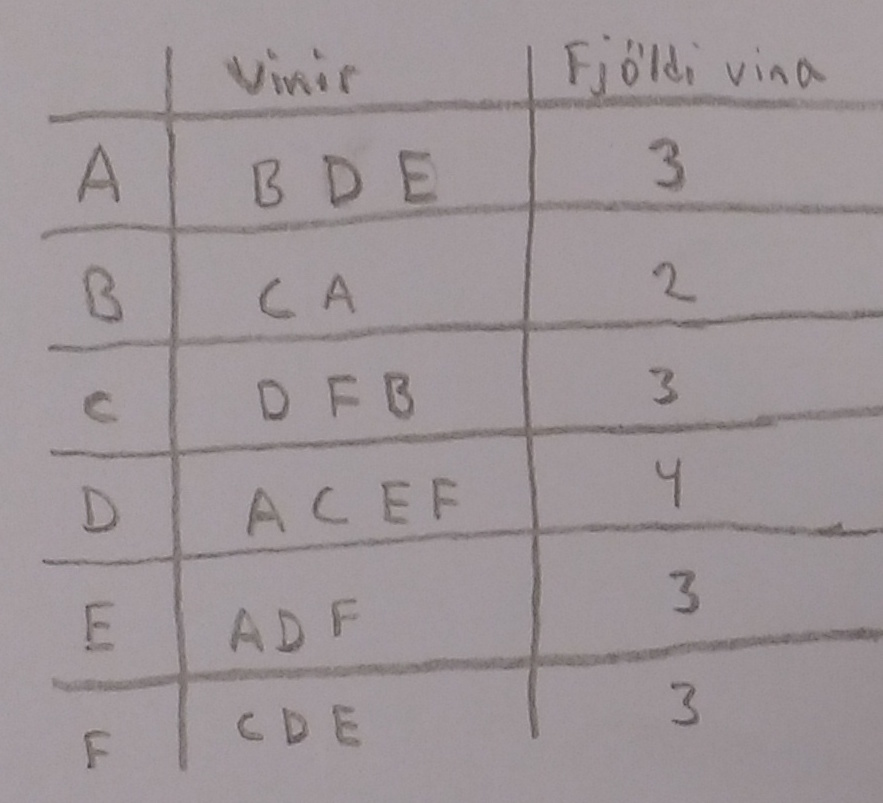 Vinir Fjöldi vina
A B D E 3
B C A 2
C D F B 3
D A C E F 4
E A D F 3
F C D E 3